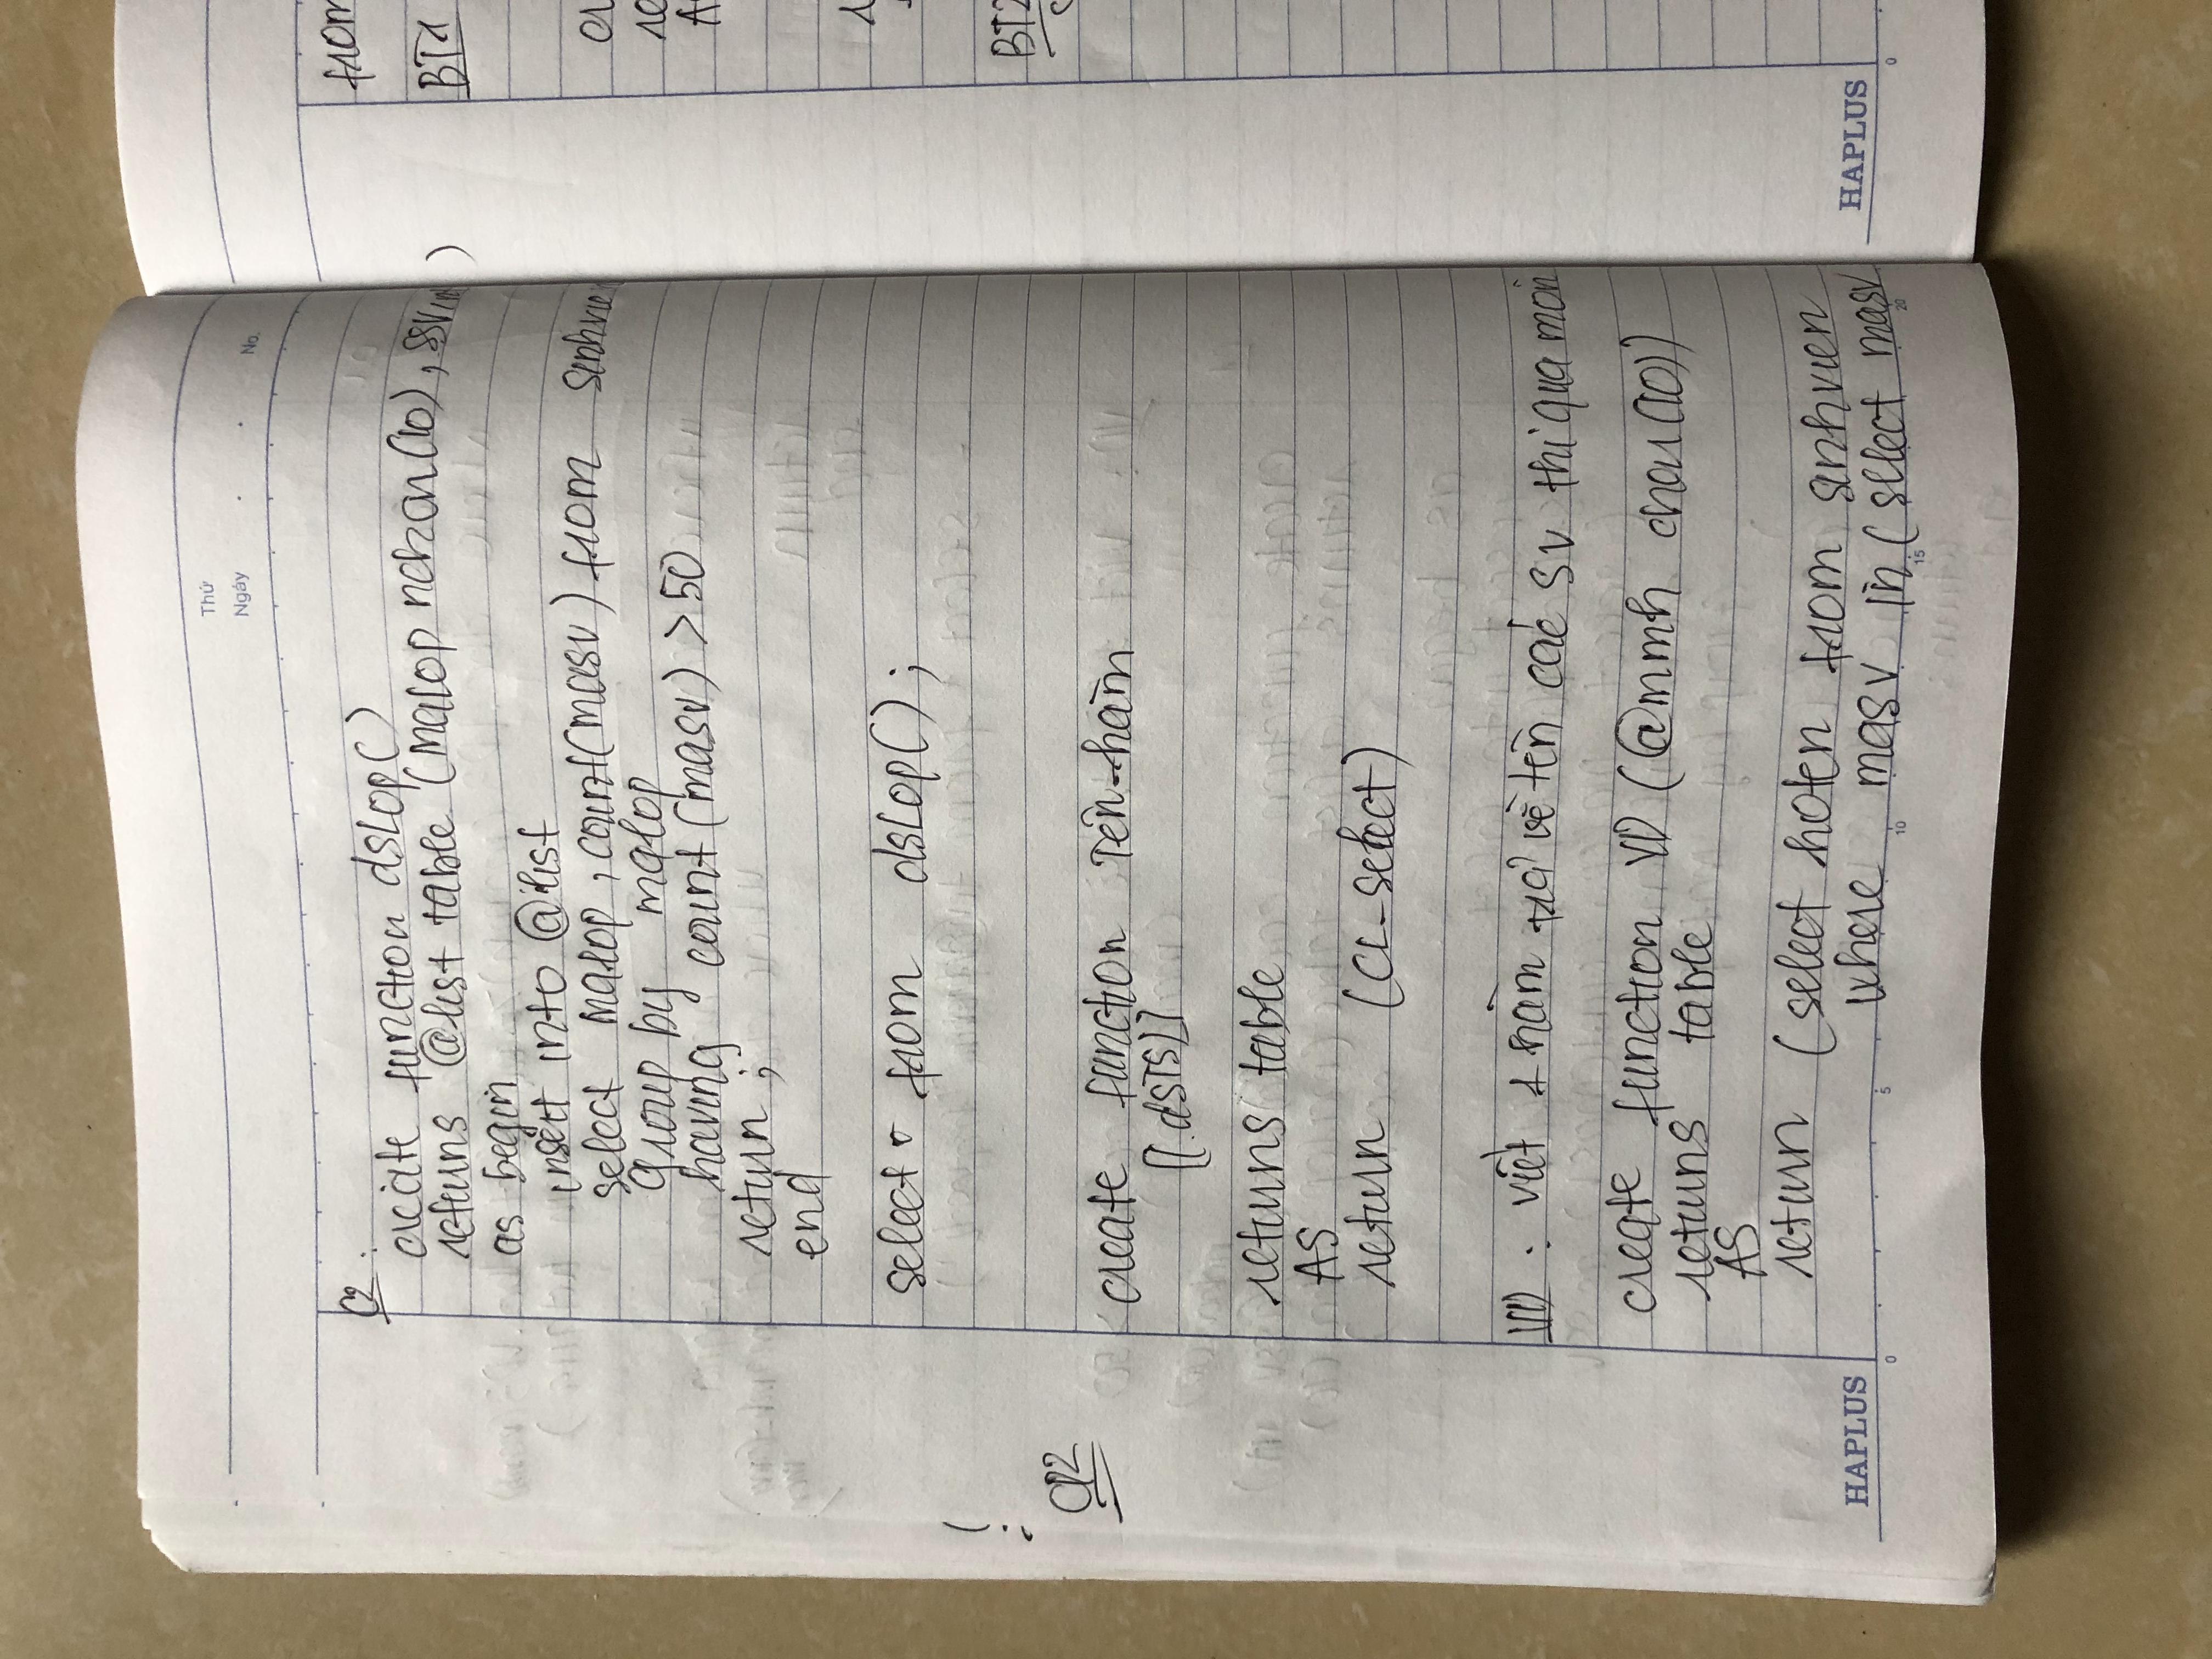 Thứ
Ngày
No.
C2 :
create function dsLop()
returns @list table (malop nchar(10), ssv int)
as begin
insert into @list
select malop, count(masv) from sinhvien
group by malop
having count(masv) > 50
return ;
end
select * from dsLop() ;
CP2
create function Tên-hàm
[(.dsTS)]
returns table
AS
return (CL-select)
VD : viết 1 hàm trả về tên các sv thi qua môn
create function VD (@mmh char(10))
returns table
AS
return (select hoten from sinhvien
where masv in (select masv
HAPLUS
0 5 10 15 20
from
BT1
BT2
HAPLUS
0